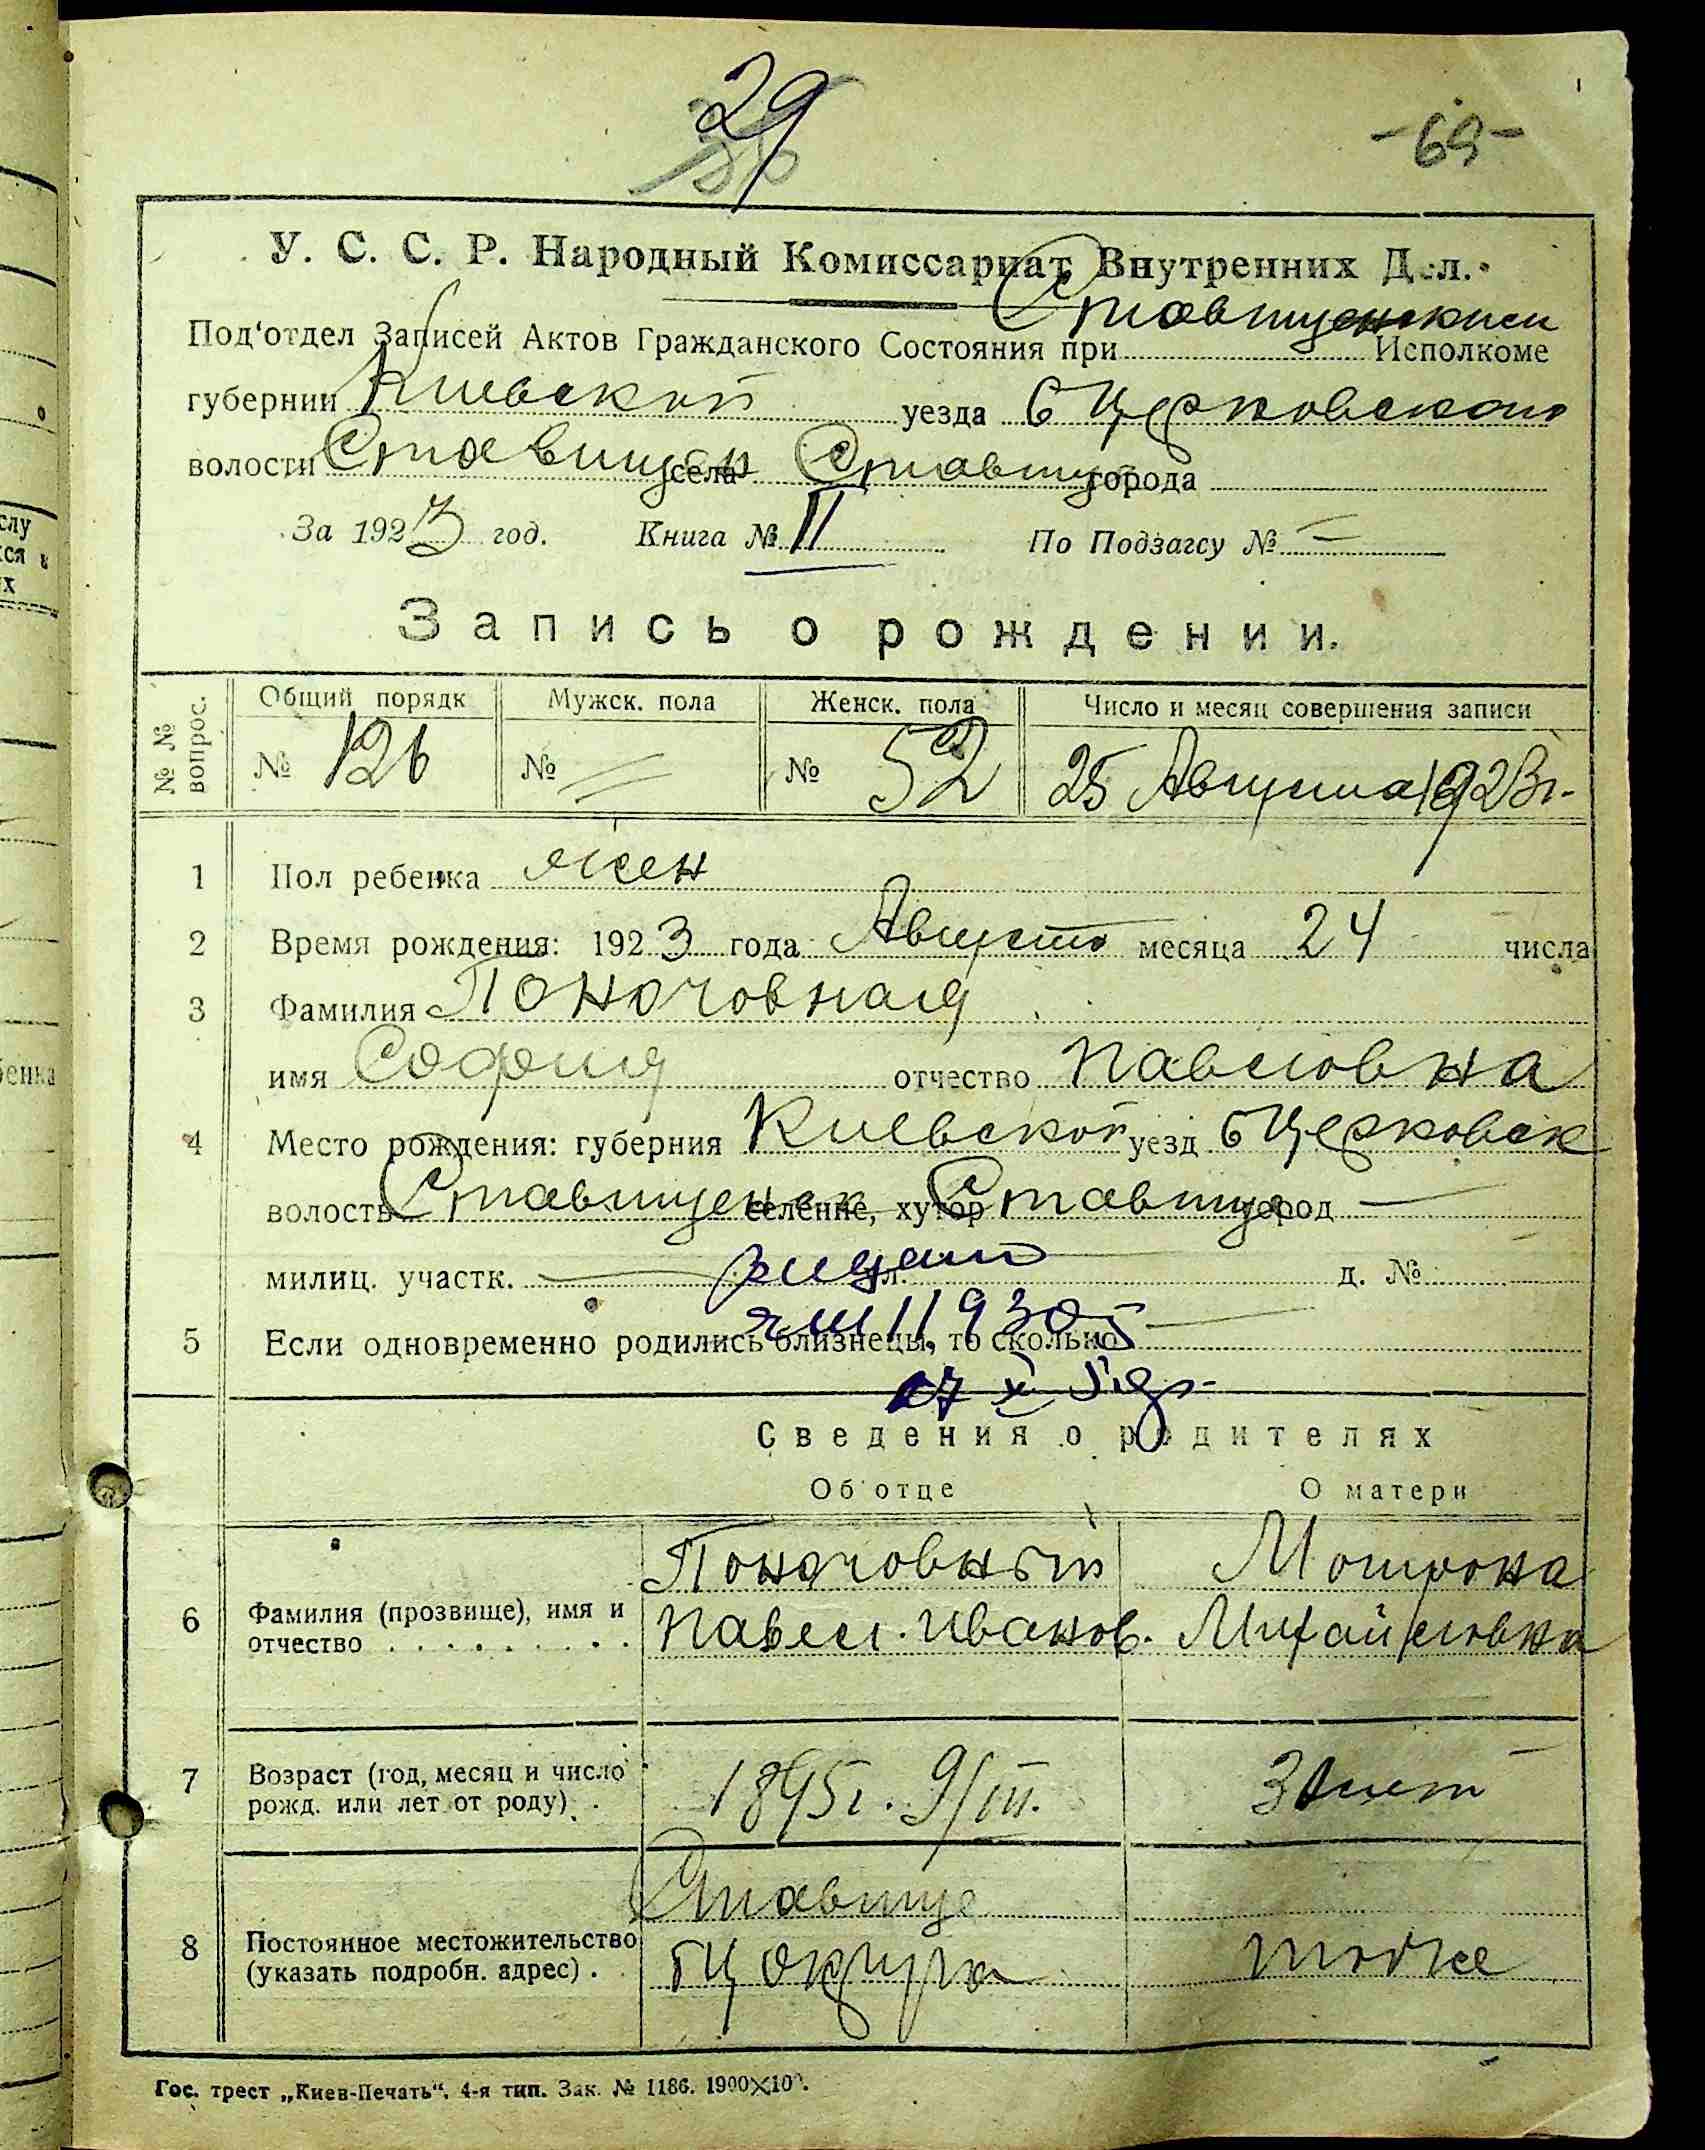 29
-69-
У. С. С. Р. Народный Комиссариат Внутренних Дел.
Под'отдел Записей Актов Гражданского Состояния при Ставищенским Исполкоме
губернии Киевской уезда б Церковского
волости Ставищен села Ставище города
За 1923 год. Книга № II По Подзагсу № —
Запись о рождении.
№ № вопрос. Общий порядк Мужск. пола Женск. пола Число и месяц совершения записи
№ 126 № = № 52 25 Августа 1923 г.
1 Пол ребенка жен
2 Время рождения: 1923 года Августа месяца 24 числа
3 Фамилия Поночовная
имя София отчество Павловна
4 Место рождения: губерния Киевской уезд б Церковск
волость Ставищенск селение, хутор Ставище город —
милиц. участк. — ул. д. №
5 Если одновременно родились близнецы, то сколько —
Сведения о родителях
Об отце О матери
6 Фамилия (прозвище), имя и отчество Поночовный Мотрона
Павел Иванов. Михайловна
7 Возраст (год, месяц и число рожд. или лет от роду) 1895 г. 9/III. лет
8 Постоянное местожительство (указать подробн. адрес) Ставище
БЦ округа тоже
Гос. трест „Киев-Печать“. 4-я тип. Зак. № 1186. 1900×100.